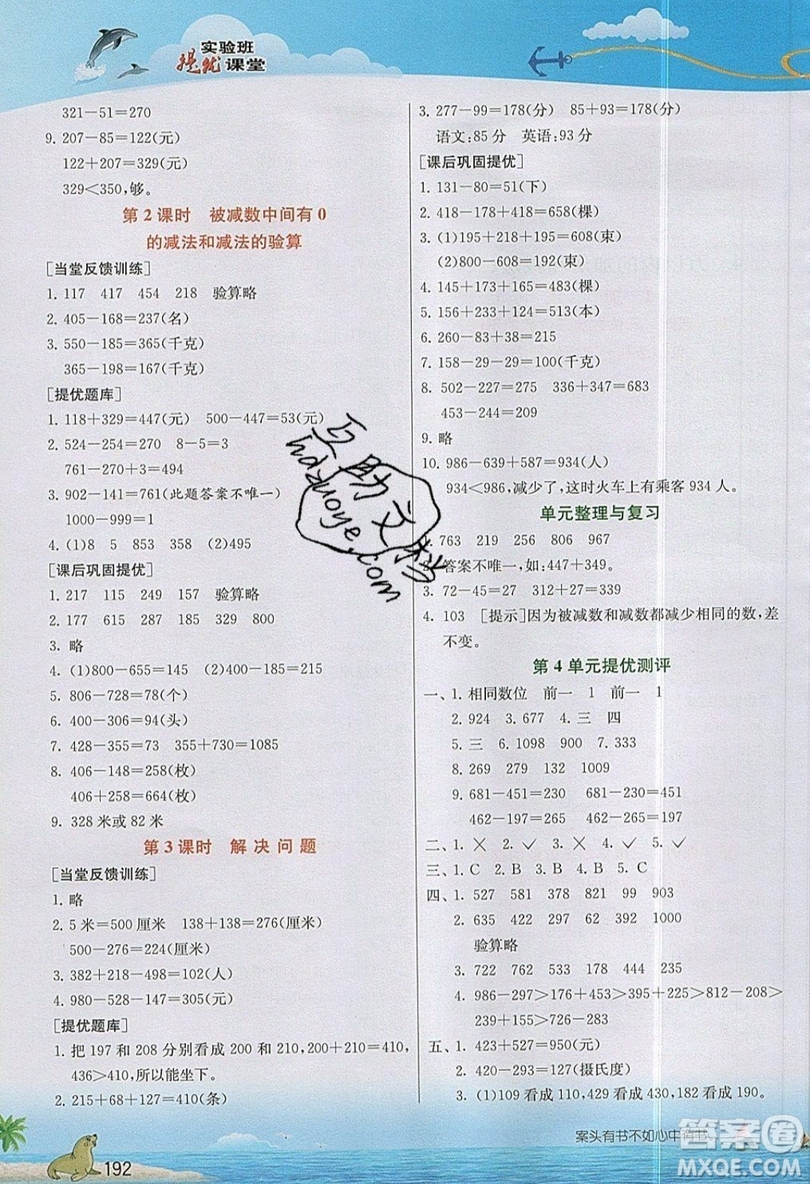 实验班
提优课堂
321-51=270
9. 207-85=122(元)
122+207=329(元)
329<350,够。
第2课时 被减数中间有0
的减法和减法的验算
[当堂反馈训练]
1. 117 417 454 218 验算略
2. 405-168=237(名)
3. 550-185=365(千克)
365-198=167(千克)
[提优题库]
1. 118+329=447(元) 500-447=53(元)
2. 524-254=270 8-5=3
761-270+3=494
3. 902-141=761(此题答案不唯一)
1000-999=1
4. (1)8 5 853 358 (2)495
[课后巩固提优]
1. 217 115 249 157 验算略
2. 177 615 287 329 800
3. 略
4. (1)800-215=585 (2)400-185=215
5. 806-728=78(个)
6. 400-306=94(头)
7. 428-355=73 355+730=1085
8. 406-148=258(枚)
406+258=664(枚)
9. 328米或82米
第3课时 解决问题
[当堂反馈训练]
1. 略
2. 5米=500厘米 138+138=276(厘米)
500-276=224(厘米)
3. 382+218-498=102(人)
4. 980-528-147=305(元)
[提优题库]
1. 把197和208分别看成200和210,200+210=410,
436>410,所以能坐下。
2. 215+68+127=410(条)
3. 277-99=178(分) 85+93=178(分)
语文:85分 英语:93分
[课后巩固提优]
1. 131-80=51(下)
2. 418-178+418=658(棵)
3. (1)195+218+195=608(束)
(2)608-195=413(束)
4. 145+173+165=483(棵)
5. 156+233+124=513(本)
6. 260-83+38=215
7. 158-29-29=100(千克)
8. 502-227=275 336+347=683
453-244=209
9. 略
10. 986-639+587=934(人)
934<986,减少了,这时火车上有乘客934人。
单元整理与复习
1. 763 219 256 806 967
2. 答案不唯一,如:447+349。
3. 72-45=27 312+27=339
4. 103 [提示]因为被减数和减数都减少相同的数,差
不变。
第4单元提优测评
一、1. 相同数位 前一 1 前一 1
2. 924 3. 677 4. 三 四
5. 三 6. 1098 900 7. 333
8. 269 970 132 1000
9. 681-451=230 681-230=451
462-197=265 462-265=197
二、1. ✕ 2. ✓ 3. ✕ 4. ✓ 5. ✓
三、1. C 2. B 3. A 4. B 5. C
四、1. 527 581 378 821 99 903
2. 635 422 297 62 392 1000
验算略
3. 722 762 533 530
4. 986-297>176+453>395+225>812-208>
239+155>726-283
五、1. 423+527=950(元)
2. 420-293=127(摄氏度)
3. (1)109看成110,429看成430,182看成190。
互助文档
hdzuoye.com
案头有书不如心中有书
192
答案圈
MXQE.COM